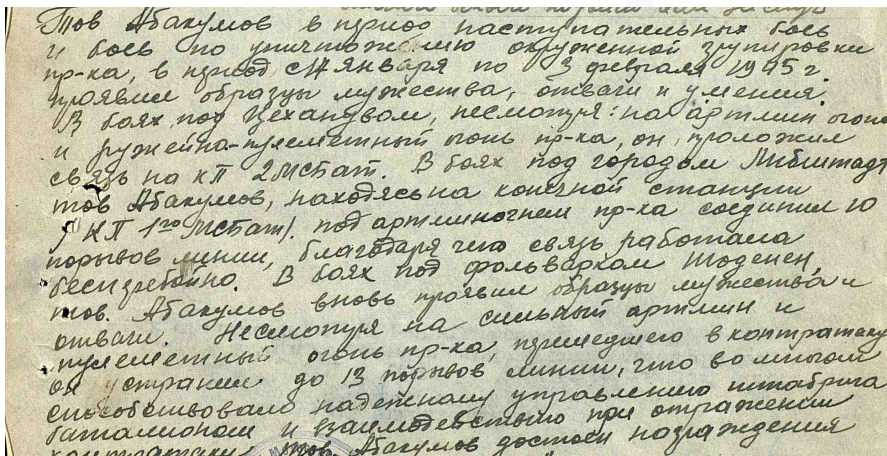 Тов Абакумов в период наступательных боев
и боев по уничтожению окруженной групировки
пр-ка, в период с 14 января по 3 февраля 1945 г.
проявил образцы мужества, отваги и умения.
В боях под Цеханувом, несмотря: на артмин. огонь
и ружейно-пулеметный огонь пр-ка, он, проложил
связь на КП 2МСБат. В боях под городом Либштадт
тов Абакумов, находясь на конечной станции
/КП 1го МСБат/. под артминогнем пр-ка соединил 10
порывов линии, благодаря чего связь работала
бесперебойно. В боях под фольварком Тоденен,
тов. Абакумов вновь проявил образцы мужества и
отваги. Несмотря на сильный артмин и
пулеметный огонь пр-ка, перешедшего в контратаку
он устранил до 13 порывов линии, что во многом
способствовало надежному управлению штабрига
баталионом и взаимодействию при отражении
контратаки. Тов Абакумов достоен награждения